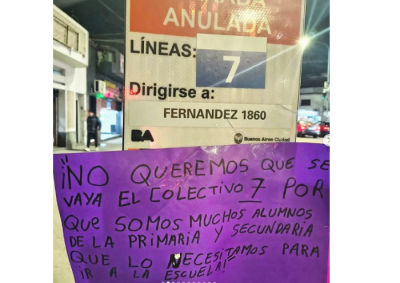 ANULADA
LÍNEAS:
7
Dirigirse a:
FERNANDEZ 1860
BA
Buenos Aires Ciudad
¡NO QUEREMOS QUE SE
VAYA EL COLECTIVO 7 POR
QUE SOMOS MUCHOS ALUMNOS
DE LA PRIMARIA Y SECUNDARIA
QUE LO NECESITAMOS PARA
IR A LA ESCUELA!